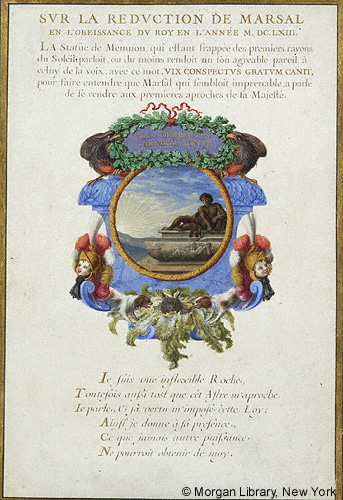 SVR LA REDVCTION DE MARSAL
EN L'OBEISSANCE DV ROY EN L'ANNÉE M. DC. LXIII.
LA Statue de Memnon, qui estant frappée des premiers rayons
du Soleil parloit, ou du moins rendoit un son agreable pareil à
celuy de la voix, avec ce mot, VIX CONSPECTVS GRATVM CANIT,
pour faire entendre que Marsal qui sembloit imprenable, a parlé
de se rendre aux premieres aproches de sa Majesté.
VIX CONSPECTVS
GRATVM CANIT
Ie suis une inflexible Roche,
Toutefois aussi tost que cét Astre m'aproche,
Ie parle, & sa vertu m'impose cette Loy;
Ainsi je donne à sa presence,
Ce que jamais autre puissance
Ne pourroit obtenir de moy.
© Morgan Library, New York